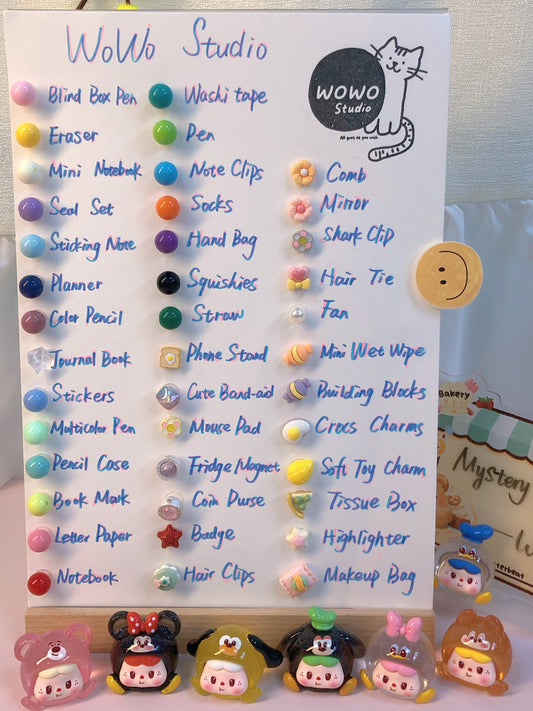 WoWo Studio
WOWO
Studio
All goes as you wish.
Blind Box Pen
Eraser
Mini Notebook
Seal Set
Sticking Note
Planner
Color Pencil
Journal Book
Stickers
Multicolor Pen
Pencil Case
Book Mark
Letter Paper
Notebook
Washi tape
Pen
Note Clips
Socks
Hand Bag
Squishies
Straw
Phone Stand
Cute Band-aid
Mouse Pad
Fridge Magnet
Coin Purse
Badge
Hair Clips
Comb
Mirror
Shark Clip
Hair Tie
Fan
Mini Wet Wipe
Building Blocks
Crocs Charms
Soft Toy Charm
Tissue Box
Highlighter
Makeup Bag
Bakery
Mystery